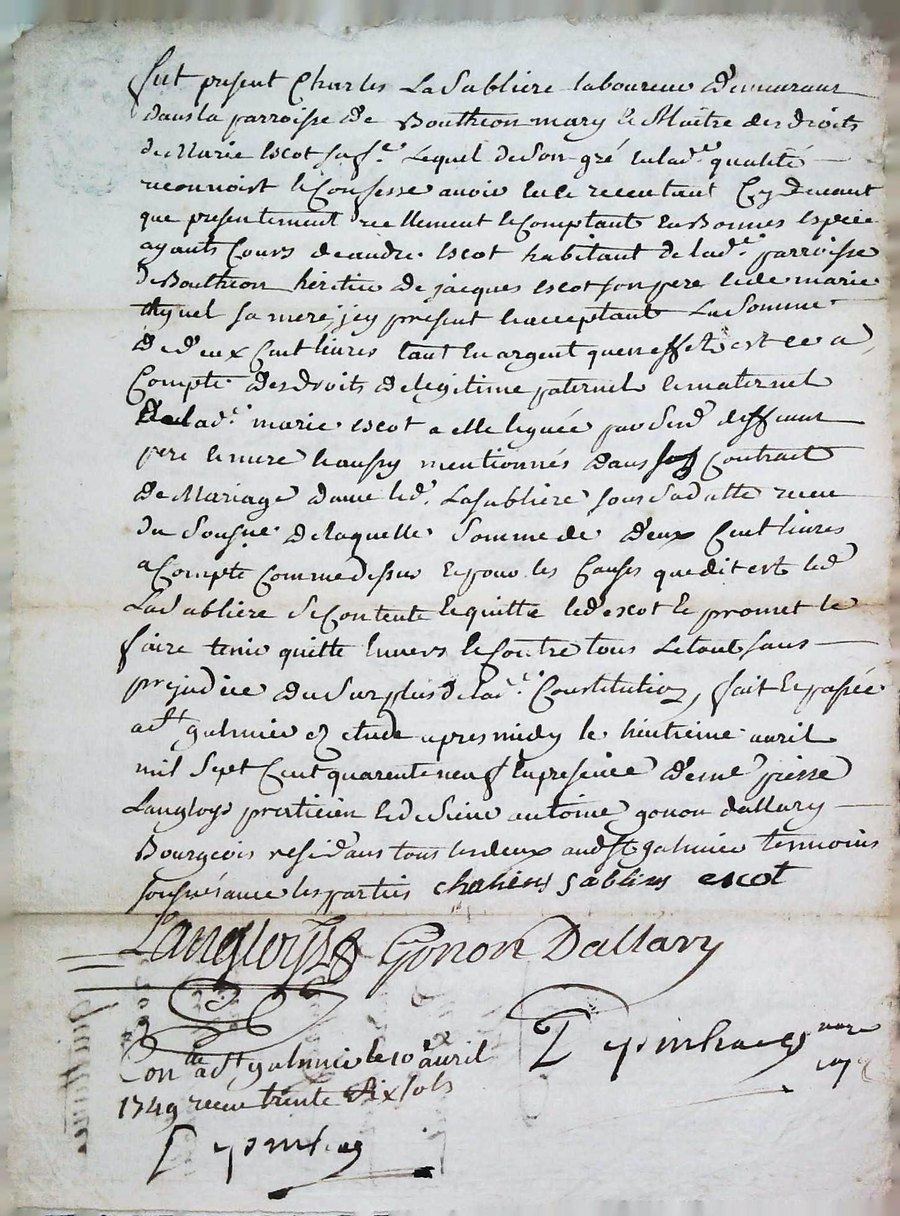 fut present Charles La Sabliere laboureur demeurant
dans la parroisse de Boutheon mary et Maitre des droits
de Marie escot sa fe. Lequel de son gré en lad.e qualité
reconnoist et Confesse avoir eu et receu tant Cy devant
que presentement reellement et Comptant en Bonnes espece
ayants Cours de andre escot habitant de lad.e parroisse
de Boutheon heritier de jacques escot son pere et de marie
sa mere, jcy present et acceptant La Somme
de deux Cent livres tant en argent qu'en effetz et ce a
Compte des droits de legitime paternel et maternel
de lad.e marie escot a elle leguée par Sesd. deffunt
pere et mere et aussy mentionnés dans son Contract
de Mariage d'avec led. Lasabliere sous sa datte receu
du Sousné de laquelle Somme de deux Cent livres
a Compte Comme dessus et pour les Causes que dit est led.
La Sabliere se Contente et quitte led. escot et promet le
faire tenir quitte envers et Contre tous Le tout sans
prejudice du Surplus de lad.e Constitution, fait et passée
a St galmier etude apres midy le huitieme avril
mil Sept Cent quarente neuf En presence de me pierre
Langloys praticien et de Sieur antoine gonon dallary
Bourgeois residans tous les deux aud St galmier temoins
sousnés avec les parties Sabliere escot
Langloys Gonon Dallary
nore
Con.lé a St galmier le 10 avril
1749 receu trente Six sols